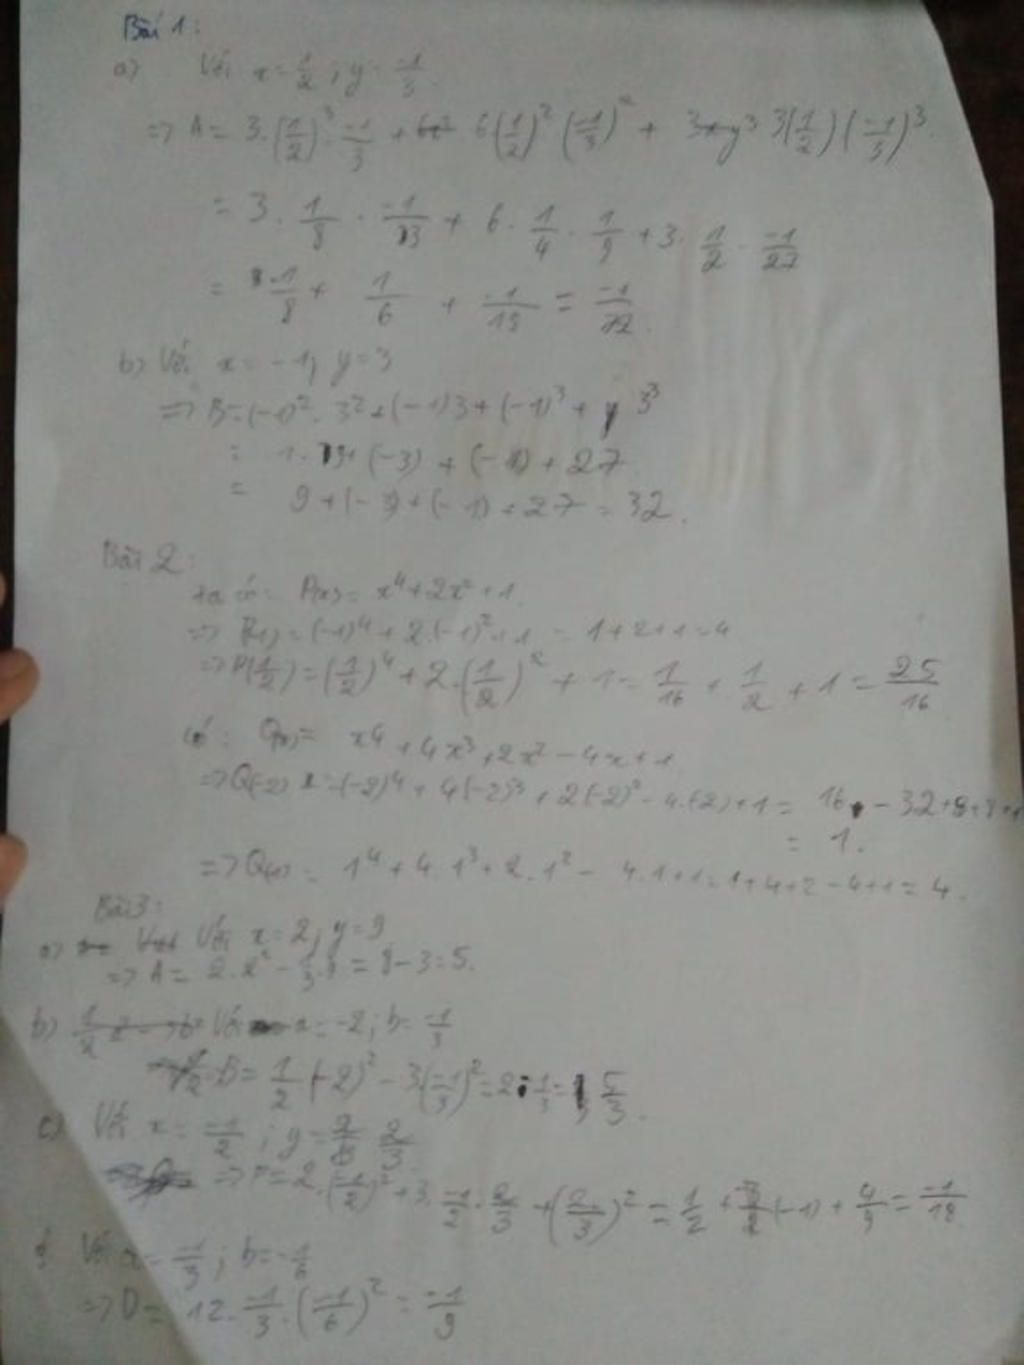 Bài 1:
a) Với x = 1/2 ; y = -1/3
=> A = 3.(1/2)^3 . -1/3 + 6(1/2)^2 (-1/3)^2 + 3(1/2)(-1/3)^3.
= 3 . 1/8 . -1/3 + 6 . 1/4 . 1/9 + 3 . 1/2 . -1/27
= -1/8 + 1/6 + -1/18 = -1/72.
b) Với x = -1; y = 3
=> B = (-1)^2 . 3^2 + (-1)3 + (-1)^3 + 3^3
= 1. 9 + (-3) + (-1) + 27
= 9 + (-3) + (-1) + 27 = 32.
Bài 2:
ta có: P(x) = x^4 + 2x^2 + 1.
=> P(-1) = (-1)^4 + 2.(-1)^2 + 1 = 1 + 2 + 1 = 4
=> P(1/2) = (1/2)^4 + 2.(1/2)^2 + 1 = 1/16 + 1/2 + 1 = 25/16
có: Q(x) = x^4 + 4x^3 + 2x^2 - 4x + 1
=> Q(-2) = (-2)^4 + 4(-2)^3 + 2(-2)^2 - 4.(-2) + 1 = 16 - 32 + 8 + 8 + 1
= 1.
=> Q(1) = 1^4 + 4.1^3 + 2.1^2 - 4.1 + 1 = 1 + 4 + 2 - 4 + 1 = 4.
Bài 3:
a) Với x = 2; y = 9
=> A = 2.2^2 - 1/3.9 = 8 - 3 = 5.
b) Với a = -2; b = -1/3
B = 1/2 (-2)^2 - 3(-1/3)^2 = 2 - 1/3 = 5/3.
c) Với x = -1/2 ; y = 2/3
=> P = 2.(-1/2)^2 + 3. -1/2 . 2/3 + (2/3)^2 = 1/2 + (-1) + 4/9 = -1/18
Với a = -1/3 ; b = -1/6
=> D = 12. -1/3 . (-1/6)^2 = -1/9